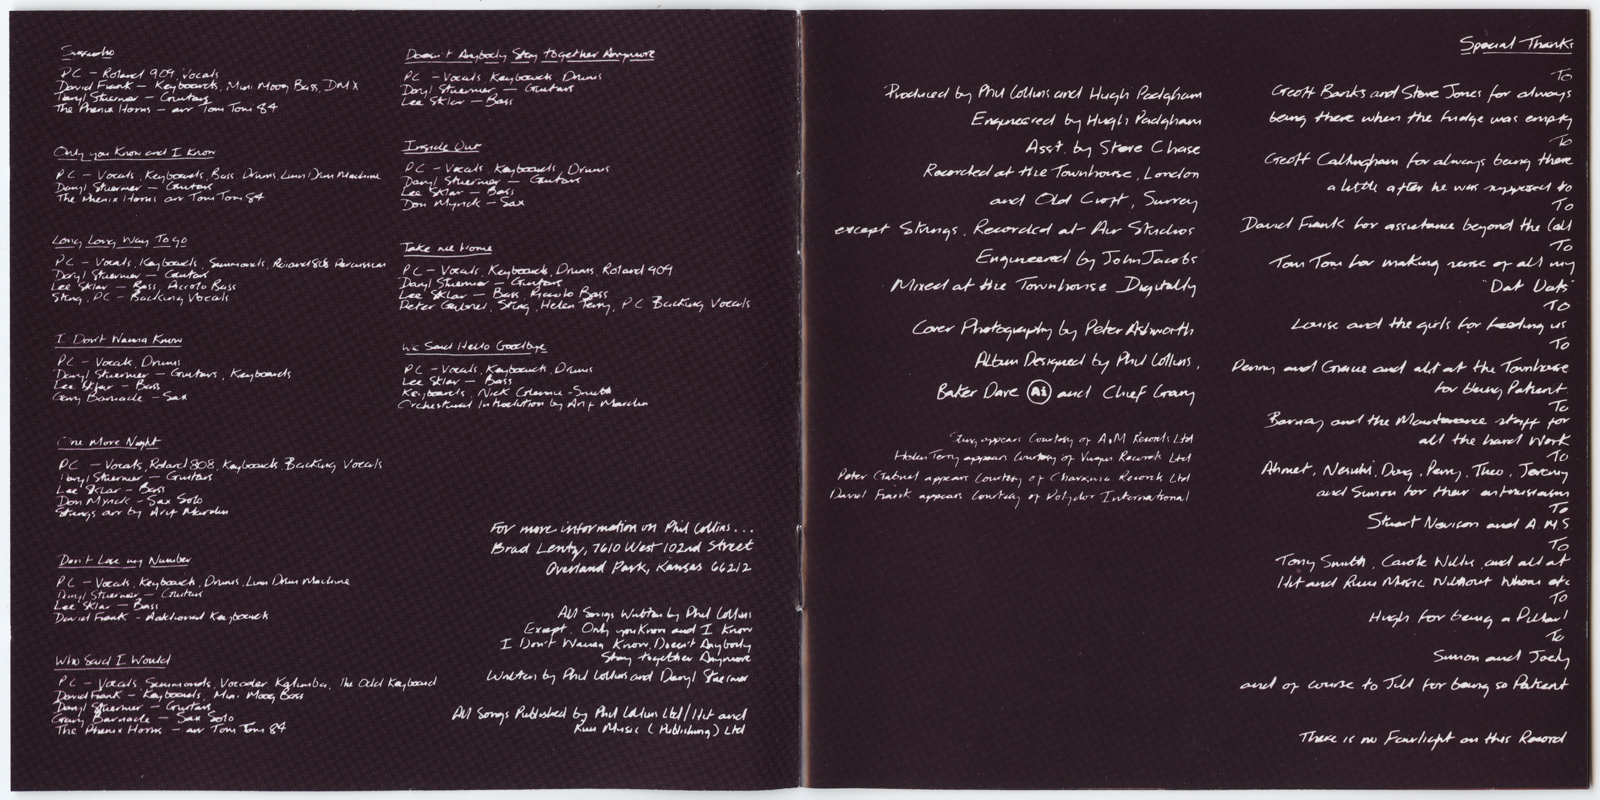 Sussudio
PC - Roland 909, Vocals
David Frank - Keyboards, Mini Moog Bass, DMX
Daryl Stuermer - Guitars
The Phenix Horns - arr Tom Tom 84
Only you Know and I Know
PC - Vocals, Keyboards, Bass, Drums, Linn Drum Machine
Daryl Stuermer - Guitars
The Phenix Horns arr Tom Tom 84
Long Long Way To go
PC - Vocals, Keyboards, Simmonds, Roland 808 Percussion
Daryl Stuermer - Guitars
Lee Sklar - Bass, Piccolo Bass
Sting, PC - Backing Vocals
I Don't Wanna Know
PC - Vocals, Drums
Daryl Stuermer - Guitars, Keyboards
Lee Sklar - Bass
Gary Barnacle - Sax
One More Night
PC - Vocals, Roland 808, Keyboards, Backing Vocals
Daryl Stuermer - Guitars
Lee Sklar - Bass
Don Myrick - Sax Solo
Strings arr by Arif Mardin
Don't Lose my Number
PC - Vocals, Keyboards, Drums, Linn Drum Machine
Daryl Stuermer - Guitars
Lee Sklar - Bass
David Frank - Additional Keyboards
Who Said I Would
PC - Vocals, Simmonds, Vocoder Kalimba, The Odd Keyboard
David Frank - Keyboards, Mini Moog Bass
Daryl Stuermer - Guitars
Gary Barnacle - Sax Solo
The Phenix Horns - arr Tom Tom 84
Doesn't Anybody Stay together Anymore
PC - Vocals, Keyboards, Drums
Daryl Stuermer - Guitars
Lee Sklar - Bass
Inside Out
PC - Vocals, Keyboards, Drums
Daryl Stuermer - Guitars
Lee Sklar - Bass
Don Myrick - Sax
Take me Home
PC - Vocals, Keyboards, Drums, Roland 909
Daryl Stuermer - Guitars
Lee Sklar - Bass Piccolo Bass
Peter Gabriel, Sting, Helen Terry, PC Backing Vocals
We Said Hello Goodbye
PC - Vocals, Keyboards, Drums
Lee Sklar - Bass
Keyboards, Nick Glennie-Smith
Orchestral Introduction by Arif Mardin
For more information on Phil Collins...
Brad Lentz, 7610 West 102nd Street
Overland Park, Kansas 66212
All Songs Written by Phil Collins
Except. Only you Know and I Know
I Don't Wanna Know, Doesn't Anybody
Stay together Anymore
Written by Phil Collins and Daryl Stuermer
All Songs Published by Phil Collins Ltd/Hit and
Run Music (Publishing) Ltd
Produced by Phil Collins and Hugh Padgham
Engineered by Hugh Padgham
Asst. by Steve Chase
Recorded at the Townhouse, London
and Old Croft, Surrey
except Strings, Recorded at Air Studios
Engineered by John Jacobs
Mixed at the Townhouse Digitally
Cover Photography by Peter Ashworth
Album Designed by Phil Collins,
Baker Dave Ai and Chief Grany
Sting appears Courtesy of A&M Records Ltd
Helen Terry appears Courtesy of Virgin Records Ltd
Peter Gabriel appears Courtesy of Charisma Records Ltd
David Frank appears Courtesy of Polydor International
Special Thanks
To
Geoff Banks and Steve Jones for always
being there when the fridge was empty
To
Geoff Callingham for always being there
a little after he was supposed to
To
David Frank for assistance beyond the Call
To
Tom Tom for making sense of all my
"Dat Dats"
To
Louise and the girls for feeding us
To
Penny and Gracie and all at the Townhouse
for being Patient
To
Barney and the Maintenance staff for
all the hard Work
To
Ahmet, Nesuhi, Doug, Perry, Theo, Jeremy
and Simon for their enthusiasm
To
Stuart Nevison and A.M.S.
To
Tony Smith, Carole Willis, and all at
Hit and Run Music Without Whom etc
To
Hugh for being a Pillar!
To
Simon and Joely
and of course to Jill for being so Patient
There is no Fairlight on this Record